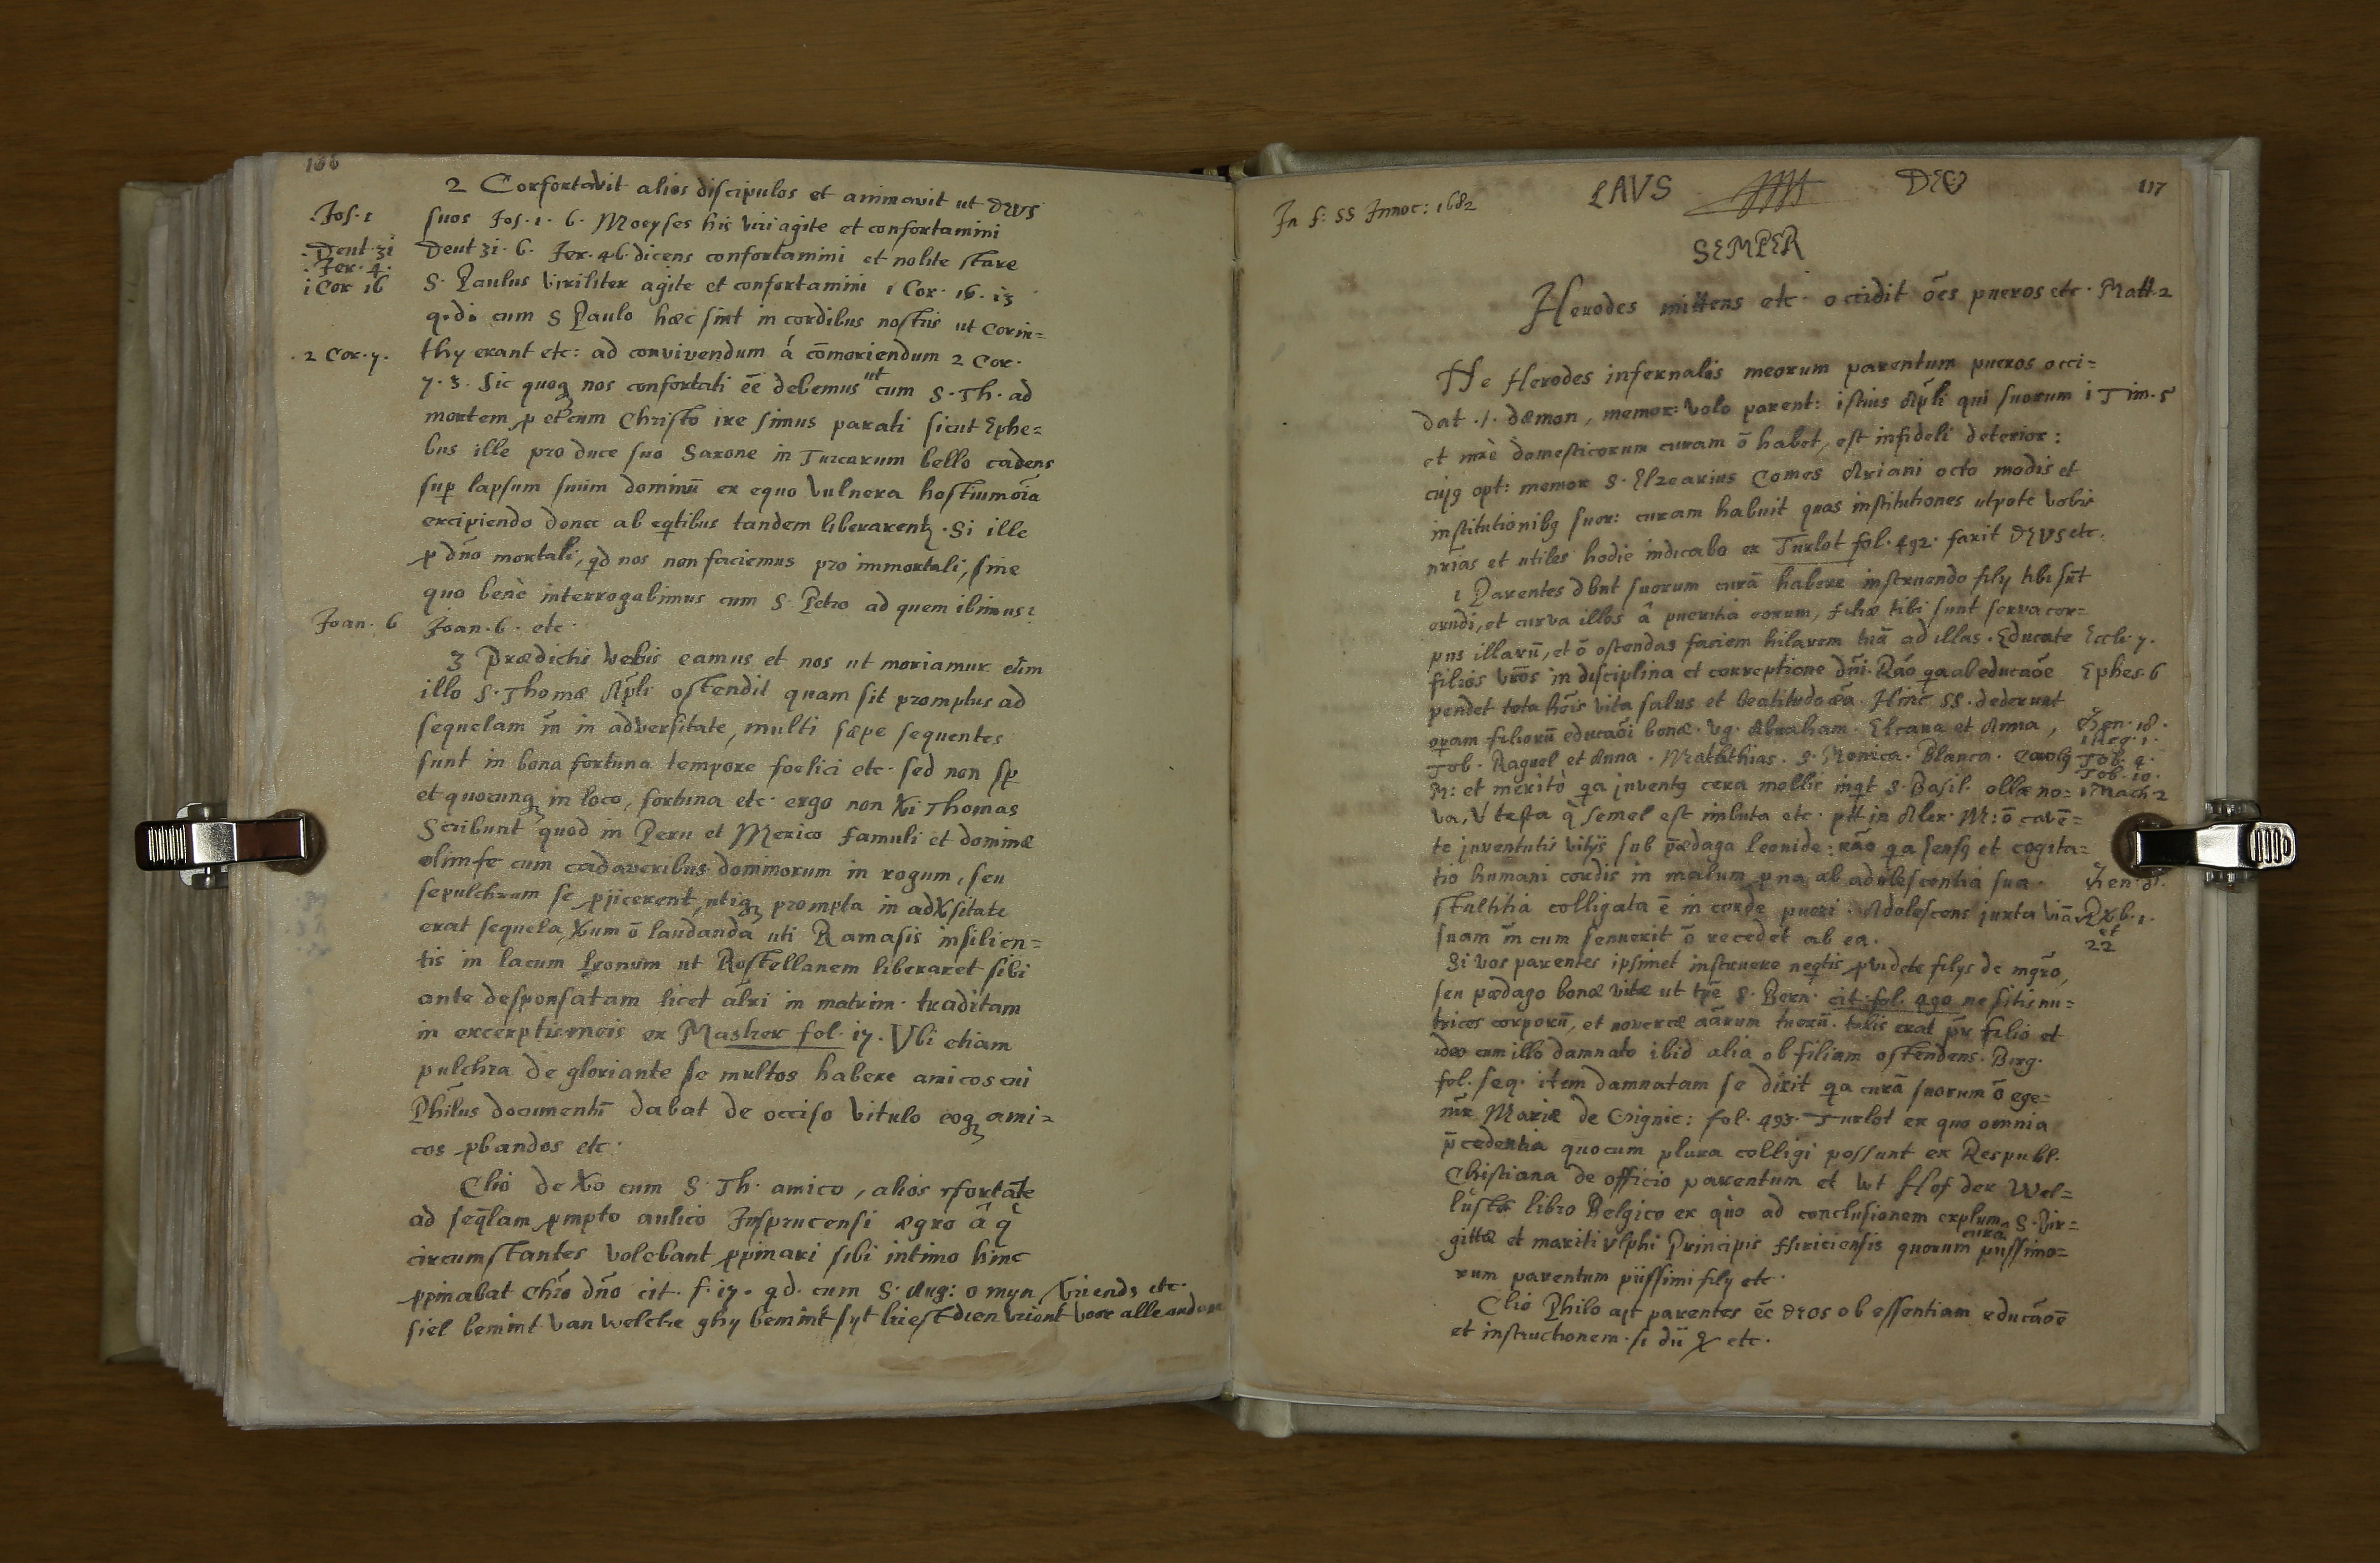 166
2 Confortavit alios discipulos et animavit ut DEVS
Jos. 1
suos Jos. 1. 6. Moeyses his viri agite et confortamini
Deut 31
Deut 31. 6. Jer. 46 dicens confortamini et nolite stare
Jer. 4.
1 Cor 16
S. Paulus viriliter agite et confortamini 1 Cor. 16. 13
q.d. cum S Paulo hæc sint in cordibus nostris ut Corin=
2 Cor. 7.
thy erant etc: ad convivendum á cōmoriendum 2 Cor.
7. 3. Sic quoqȝ nos confortati ēe debemus ut cum S. Th. ad
mortem et cum Christo ire simus parati sicut Ephe=
bus ille pro duce suo Saxone in Turcarum bello cadens
sup lapsum suum dominū ex equo vulnera hostium oīa
excipiendo donec ab eqtibus tandem liberarentȝ. Si ille
p dño mortali, qd nos non faciemus pro immortali, sine
quo benè interrogabimus cum S. Petro ad quem ibimus?
Joan. 6
Joan. 6. etc.
3 Prædictis verbis eamus et nos ut moriamur cum
illo S. Thomæ Apli ostendit quam sit promptus ad
sequelam m̄ in adversitate, multi sæpe sequentes
sunt in bona fortuna tempore foelici etc. sed non sp
et quocunqȝ in loco, fortuna etc. ergo non Xi Thomas
Scribunt quod in Peru et Mexico famuli et dominæ
olim se cum cadaveribus dominorum in rogum, seu
sepulchrum se pjicerent, utiqȝ prompta in adXsitate
erat sequela, Xum ō laudanda uti Ramasis insilien=
tis in lacum Leonum ut Rostellanem liberaret sibi
ante desponsatam licet alri in matrim. traditam
in excerptis meis ex Masher fol. 17. Vbi etiam
pulchra de gloriante se multos habere amicos cui
Philus documentū dabat de occiso vitulo eoqȝ ami=
cos pbandos etc.
Clio de Xo cum S. Th. amico, alios fortāte
ad seqlam pmpto aulico Insprucensi ægro â q
circumstantes volebant ppinari sibi intimo hinc
ppinabat Chro dño cit. f. 17. qd. cum S. Aug: o myn vriends etc.
siel bemint van welcke ghy bemint syt kiest dien vriont voor alle andere
117
In f: SS Innoc: 1682
LAVS DEO
SEMPER
Herodes mittens etc. occidit ōes pueros etc. Matt. 2
Ne Herodes infernalis meorum parentum pueros occi=
dat .1. dæmon, memor: volo parent: istius Apli qui suorum 1 Tim. 5
et mxè domesticorum curam ō habet, est infideli deterior:
cujȝ opt: memor S. Elzearius Comes Ariani octo modis et
institutionibȝ suor: curam habuit quas institutiones utpote vobis
nrias et utiles hodie indicabo ex Turlot fol. 492. faxit DEVS etc.
1 Parentes dbnt suorum curā habere instruendo filÿ tibi sūt
erudi, et curva illos â pueritia eorum, filiæ tibi sunt serva cor=
pus illarū, et ō ostendas faciem hilarem tuā ad illas. Educate Eccli. 7.
filios vr̄os in disciplina et correptione dñi. Rāo qa ab educāoe Ephes. 6
pendet tota hōis vita salus et beatitudo æa. Hinc SS. dederunt
opram filiorū educāoi bonæ. vg. Abraham. Elcana et Anna, Gen. 18.
1 Reg. 1.
Tob. Raguel et Anna. Mathathias. S. Monica. Blanca. Carolȝ Tob. 4.
Tob. 10.
M: et meritò qa juventȝ cera mollis inqt S. Basil. ollæ no= 1 Mach. 2
va, V testa q semel est imbuta etc. ptt in Alex. M: ō cavē=
te juventutis vitÿs sub pædago Leonide: rāo qa sensȝ et cogita=
tio humani cordis in malum pna ab adolescentia sua. Gen. 8.
stultitia colligata ē in corde pueri. Adolescens juxta viā Pxb. 1.
et
22
suam m̄ cum senuerit ō recedet ab ea.
Si vos parentes ipsimet instruere neqtis pvidete filÿs de mgro,
seu pædago bonæ vitæ ut S. Bern. cit. fol. 490 ne sitis nu=
trices corporū, et novercæ aārum tuorū. talis erat pr filio et
ideo cum illo damnato ibid alia ob filiam ostendens. Birg.
fol. seq. item damnatam se dixit qa curā suorum ō ege=
Mariæ de Oignie: fol. 493. Turlot ex quo omnia
p̄cedentia quocum plura colligi possunt ex Respubl.
Christiana de officio parentum et wt Hof der Wel=
lusts libro Belgico ex quo ad conclusionem S. Bir=
gittæ et mariti Vlphi Principis quorum cura piissimo=
rum parentum piissimi filÿ etc.
Clio Philo ait parentes ēe deos ob essentiam educāoē
et instructionem. si dii etc.